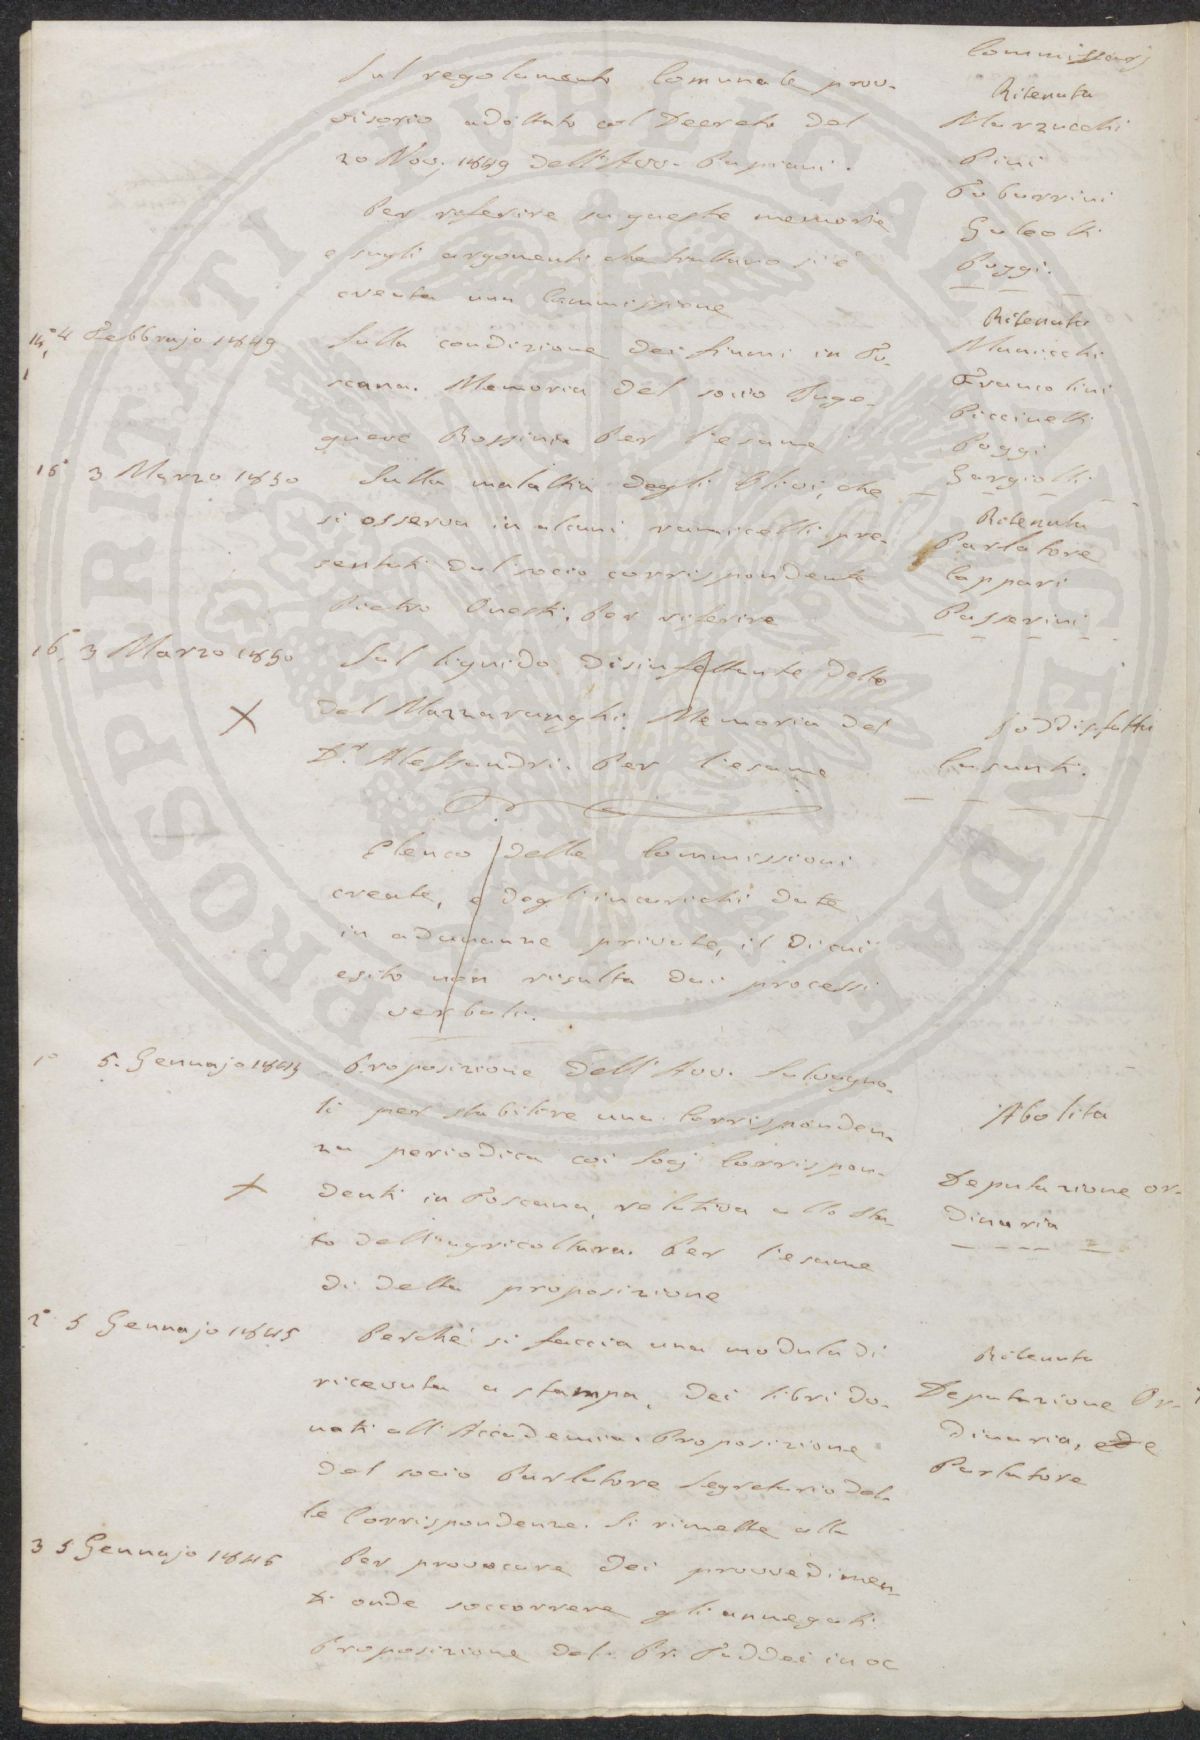 Commissarj
Sul regolamento Comunale prov-
visorio adottato col Decreto del
20 Nov. 1849 dell'Avv. Papiani.
Per riferire su queste memorie
e sugli argomenti che trattano si è
creata una Commissione
Ritenuta
Marzucchi
Pini
Taburrini
Galeotti
Poggi.
14° 4 Febbrajo 1849
Sulla condizione dei fiumi in To-
scana. Memoria del socio Inge-
gnere Rossini Per l'esame
Ritenuta
Manicchi
Francolini
Piccinelli
Poggi
Gargiolli
15° 3 Marzo 1850
Sulla malattia degli Olivi, che
si osserva in alcuni ramicelli pre-
sentati dal socio corrispondente
Pietro Onesti. Per riferire
Ritenuta
Parlatore
Cappari
Passerini
16° 3 Marzo 1850
Sul liquido disinfettante detto
del Mazzaranghi. Memoria del
Dr. Alessandri. Per l'esame
X
Soddisfatta
Casanti.
Elenco delle Commissioni
create, e degli incarichi date
in adunanze private, il di cui
esito non risulta dai processi
verbali.
1° 5. Gennajo 1845
Proposizione dell'Avv. Salvagno-
li per stabilire una Corrisponden-
za periodica coi Socj Corrispon-
denti in Toscana, relativa allo sta-
to dell'agricoltura. Per l'esame
di detta proposizione
X
Abolita
Deputazione or-
dinaria
2° 5 Gennajo 1845
Perchè si faccia una modula di
ricevuta a stampa, dei libri do-
nati all'Accademia. Proposizione
del socio Parlatore Segretario del-
le Corrispondenze. Si rimette alla
Ritenuta
Deputazione Or-
dinaria, e
Parlatore
3 5 Gennajo 1845
Per provocare dei provvedimen-
ti onde soccorrere gli annegati
Proposizione del Pr. Taddei in oc
PROSPERITATI PVBLICAE AVGENDAE